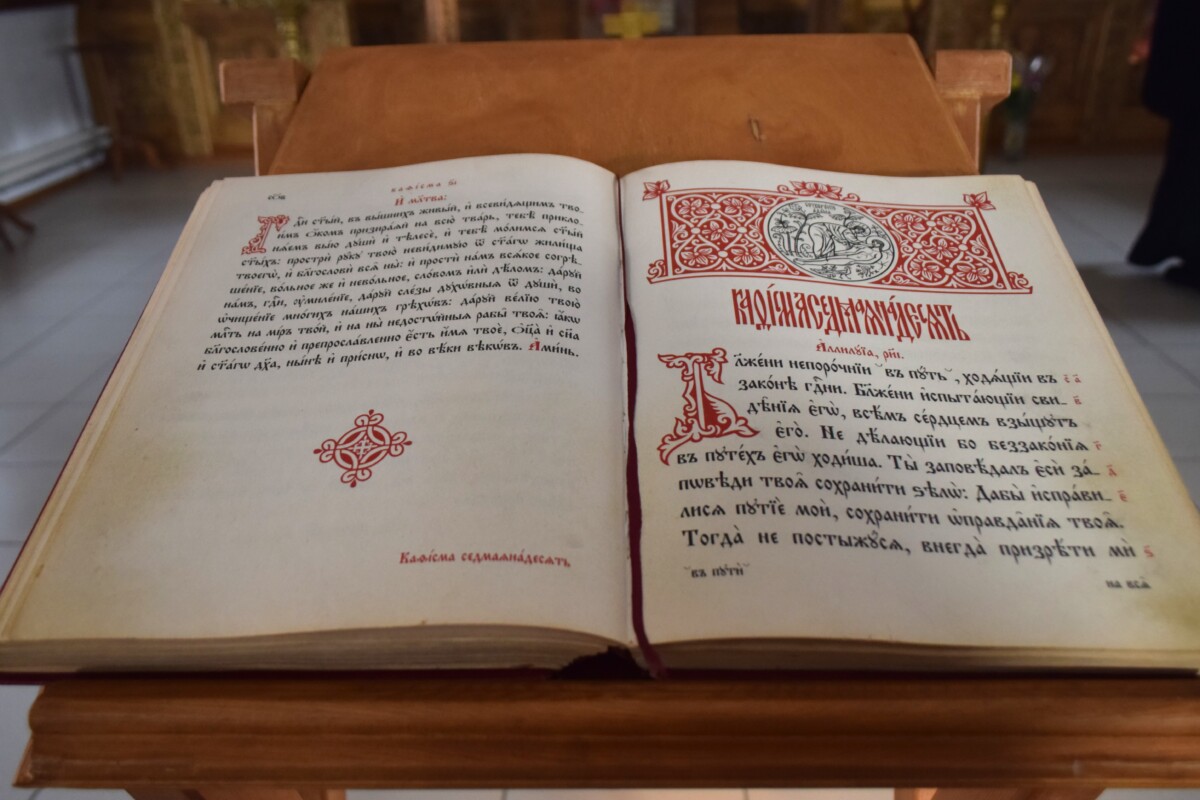 каѳі́сма ѕ҃і
И҆ мл҃тва:
Гдⷭ҇и ст҃ы́й, въ вы́шнихъ живы́й, и҆ всеви́дащимъ тво-
и́мъ ѻ҆́комъ призира́ѧй на всю̀ тва́рь, тебѣ̀ прикло-
нѧ́емъ вы́ю дꙋшѝ и҆ тѣлесѐ, и҆ тебѣ̀ мо́лимсѧ ст҃ы́й
ст҃ы́хъ: прострѝ рꙋ́кꙋ твою̀ неви́димꙋю ѿ ст҃а́гѡ жили́ща
твоегѡ̀, и҆ блг҃ословѝ всѧ̑ ны̀: и҆ простѝ на́мъ всѧ́кое согрѣ-
ше́нїе, во́льное же и҆ нево́льное, сло́вомъ и҆лѝ дѣ́ломъ: да́рꙋй
на́мъ, гдⷭ҇и, ᲂу҆миле́нїе, да́рꙋй сле́зы дꙋхѡ́вныѧ ѿ дꙋшѝ, во
ѡ҆чище́нїе мно́гихъ на́шихъ грѣхѡ́въ: да́рꙋй ве́лїю твою̀
млⷭ҇ть на мі́ръ тво́й, и҆ на ны̀ недостѡ́йныѧ рабы̑ твоѧ̑: ꙗ҆́кѡ
блг҃ослове́нно и҆ препросла́вленно є҆́сть и҆́мѧ твоѐ, ѻ҆ц҃а̀ и҆ сн҃а
и҆ ст҃а́гѡ дх҃а, ны́нѣ и҆ при́снѡ, и҆ во вѣ́ки вѣкѡ́въ. А҆ми́нь.
Каѳі́сма седмаѧна́десѧть
КАѲІ́СМА СЕДМАѦНА́ДЕСѦТЬ
А҆ллилꙋ́їа, рн҃і.
Бл҃же́ни непоро́чнїи въ пꙋ́ть, ходѧ́щїи въ є҆ а҃
зако́нѣ гдⷭ҇ни. Бл҃же́ни и҆спыта́ющїи сви- в҃
дѣ̑нїѧ є҆гѡ̀, всѣ́мъ се́рдцемъ взы́щꙋтъ
є҆го̀. Не дѣ́лающїи бо беззако́нїѧ г҃
въ пꙋте́хъ є҆гѡ̀ ходи́ша. Ты̀ заповѣ́далъ є҆сѝ за́- д҃
пѡвѣди твоѧ̑ сохрани́ти ѕѣлѡ̀: Дабы̀ и҆спра́ви- є҃
лисѧ пꙋтїѐ моѝ, сохрани́ти ѡ҆правда̑нїѧ твоѧ̑.
Тогда̀ не постыжꙋ́сѧ, внегда̀ призрѣ́ти мѝ ѕ҃
въ пꙋтѝ
на всѧ̑